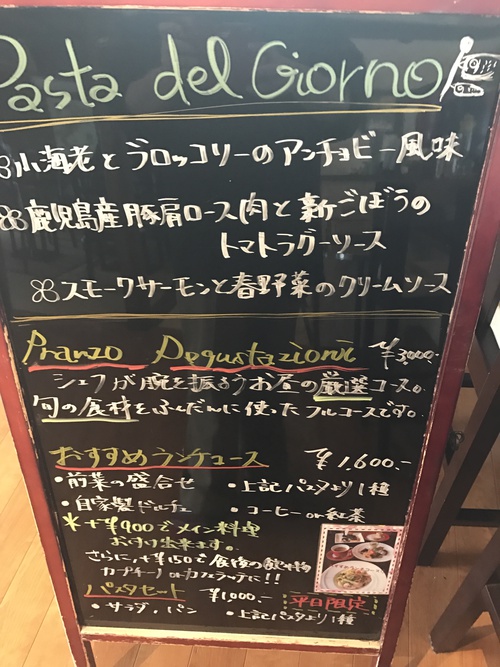 Pasta del Giorno
小海老とブロッコリーのアンチョビー風味
鹿児島産豚肩ロース肉と新ごぼうの
トマトラグーソース
スモークサーモンと春野菜のクリームソース
Pranzo Degustazione ¥3,000.-
シェフが腕を振るうお昼の厳選コース。
旬の食材をふんだんに使ったフルコースです。
おすすめランチコース ¥1,600.-
・前菜の盛合せ ・上記パスタより1種
・自家製ドルチェ ・コーヒー or 紅茶
*+¥900でメイン料理
お付け出来ます。
さらに、+¥150で食後の飲み物
カプチーノ or カフェラッテに!!
パスタセット ¥1,000.- 平日限定
・サラダ、パン ・上記パスタより1種